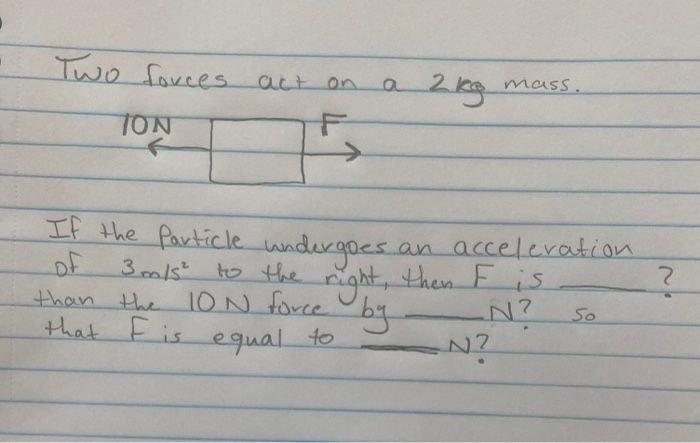 Two forces act on a 2kg mass.
10N F
If the Particle undergoes an acceleration
of 3m/s² to the right, then F is ____ ?
than the 10N force by ____N? so
that F is equal to ____N?